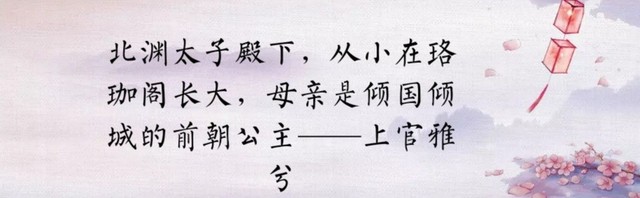 北渊太子殿下，从小在珞
珈阁长大，母亲是倾国倾
城的前朝公主——上官雅
兮